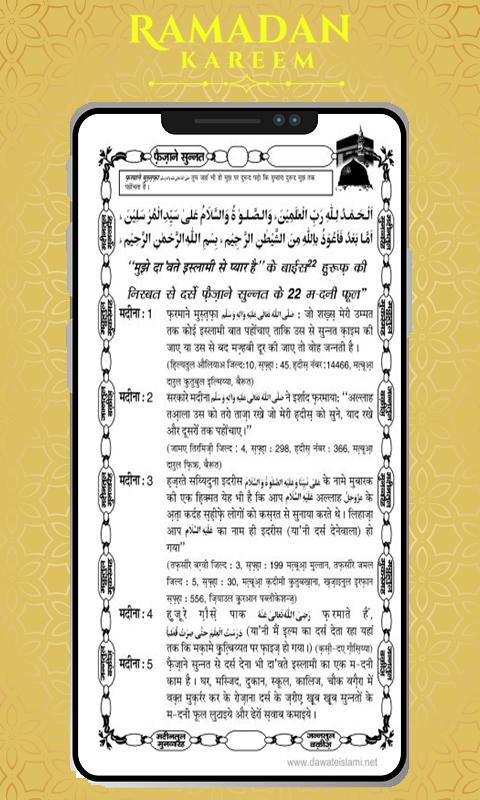 RAMADAN
KAREEM
फ़ैज़ाने सुन्नत
फ़रमाने मुस्तफ़ा صلى الله تعالى عليه واله وسلم तुम जहां भी हो मुझ पर दुरूद पढ़ो कि तुम्हारा दुरूद मुझ तक
पहुंचता है।
اَلْحَمْدُ لِلّٰهِ رَبِّ الْعٰلَمِيْنَ، وَالصَّلٰوةُ وَالسَّلَامُ عَلٰى سَيِّدِ الْمُرْسَلِيْنَ،
اَمَّا بَعْدُ فَاَعُوْذُ بِاللّٰهِ مِنَ الشَّيْطٰنِ الرَّجِيْمِ، بِسْمِ اللّٰهِ الرَّحْمٰنِ الرَّحِيْمِ،
“मुझे दा'वते इस्लामी से प्यार है” के बाईस22 हुरूफ़ की
निस्बत से दर्से फ़ैज़ाने सुन्नत के 22 म-दनी फूल”
मदीना : 1 फ़रमाने मुस्त़फ़ा صلى الله تعالى عليه واله وسلم : जो शख़्स मेरी उम्मत
तक कोई इस्लामी बात पहोंचाए ताकि उस से सुन्नत क़ाइम की
जाए या उस से बद मज़्हबी दूर की जाए तो वोह जन्नती है।
(हि़ल्यतुल औलियाअ जिल्द:10, सफ़्ह़ा : 45, ह़दीस़ नंबर :14466, मत़्बूआ़
दारुल कुतुबुल इ़ल्मिय्या, बैरूत)
मदीना : 2 सरकारे मदीना صلى الله تعالى عليه واله وسلم ने इर्शाद फ़रमाया: “अल्लाह
तआ़ला उस को तरो ताज़ा रखे जो मेरी ह़दीस़ को सुने, याद रखे
और दूसरों तक पहोंचाए।”
(जामेए तिरमिज़ी जिल्द : 4, सफ़्ह़ा : 298, ह़दीस़ नंबर : 366, मत़्बूआ़
दारुल फ़िक्र, बैरूत)
मदीना : 3 ह़ज़रते सय्यिदुना इदरीस على نبينا وعليه الصلوة والسلام के नामे मुबारक
की एक ह़िक्मत येह भी है कि आप عليه السلام अल्लाह عزوجل के
अ़त़ा कर्दह स़ह़ीफ़े लोगों को कस़रत से सुनाया करते थे। लिहाज़ा
आप عليه السلام का नाम ही इदरीस (या'नी दर्स देनेवाला) हो
गया”
(तफ़्सीरे बग़वी जिल्द : 3, सफ़्ह़ा : 199 मत़्बूआ़ मुल्तान, तफ़्सीरे जमल
जिल्द : 5, सफ़्ह़ा : 30, मत़्बूआ़ क़दीमी कुतुबख़ाना, ख़ज़ाइनुल इ़रफ़ान
सफ़्ह़ा : 556, ज़ियाउल क़ुरआन पब्लीकेशन्ज़)
मदीना : 4 हुज़ूरे ग़ौसे़ पाक رضى الله تعالى عنه फ़रमाते हैं,
درست العلم حتى صرت قطبا (या'नी मैं इ़ल्म का दर्स देता रहा यहां
तक कि मक़ामे क़ुत़्बिय्यत पर फ़ाइज़ हो गया।) (क़सी-दए ग़ौसि़य्या)
मदीना : 5 फ़ैज़ाने सुन्नत से दर्स देना भी दा'वते इस्लामी का एक म-दनी
काम है। घर, मस्जिद, दुकान, स्कूल, कालिज, चौक वग़ैरा में
वक़्त मुक़र्रर कर के रोज़ाना दर्स के ज़रीए़ ख़ूब ख़ूब सुन्नतों के
म-दनी फूल लुटाइये और ढेरों स़वाब कमाइये।
मदीनतुल मुनव्वरह
जन्नतुल बक़ीअ़
www.dawateislami.net